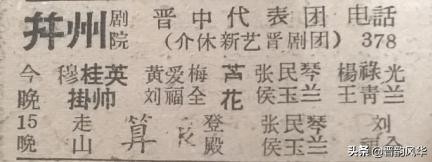 幷州 剧院 晋中代表团电話
(介休新艺晋剧团) 378
今 穆桂英 黄爱梅 芦 张民琴 楊祿光
晚 掛帅 刘福全 花 侯玉兰 王青兰
15 走 算 登 张民琴 刘
晚 山 殿 侯玉兰
头条 @晋韵风华